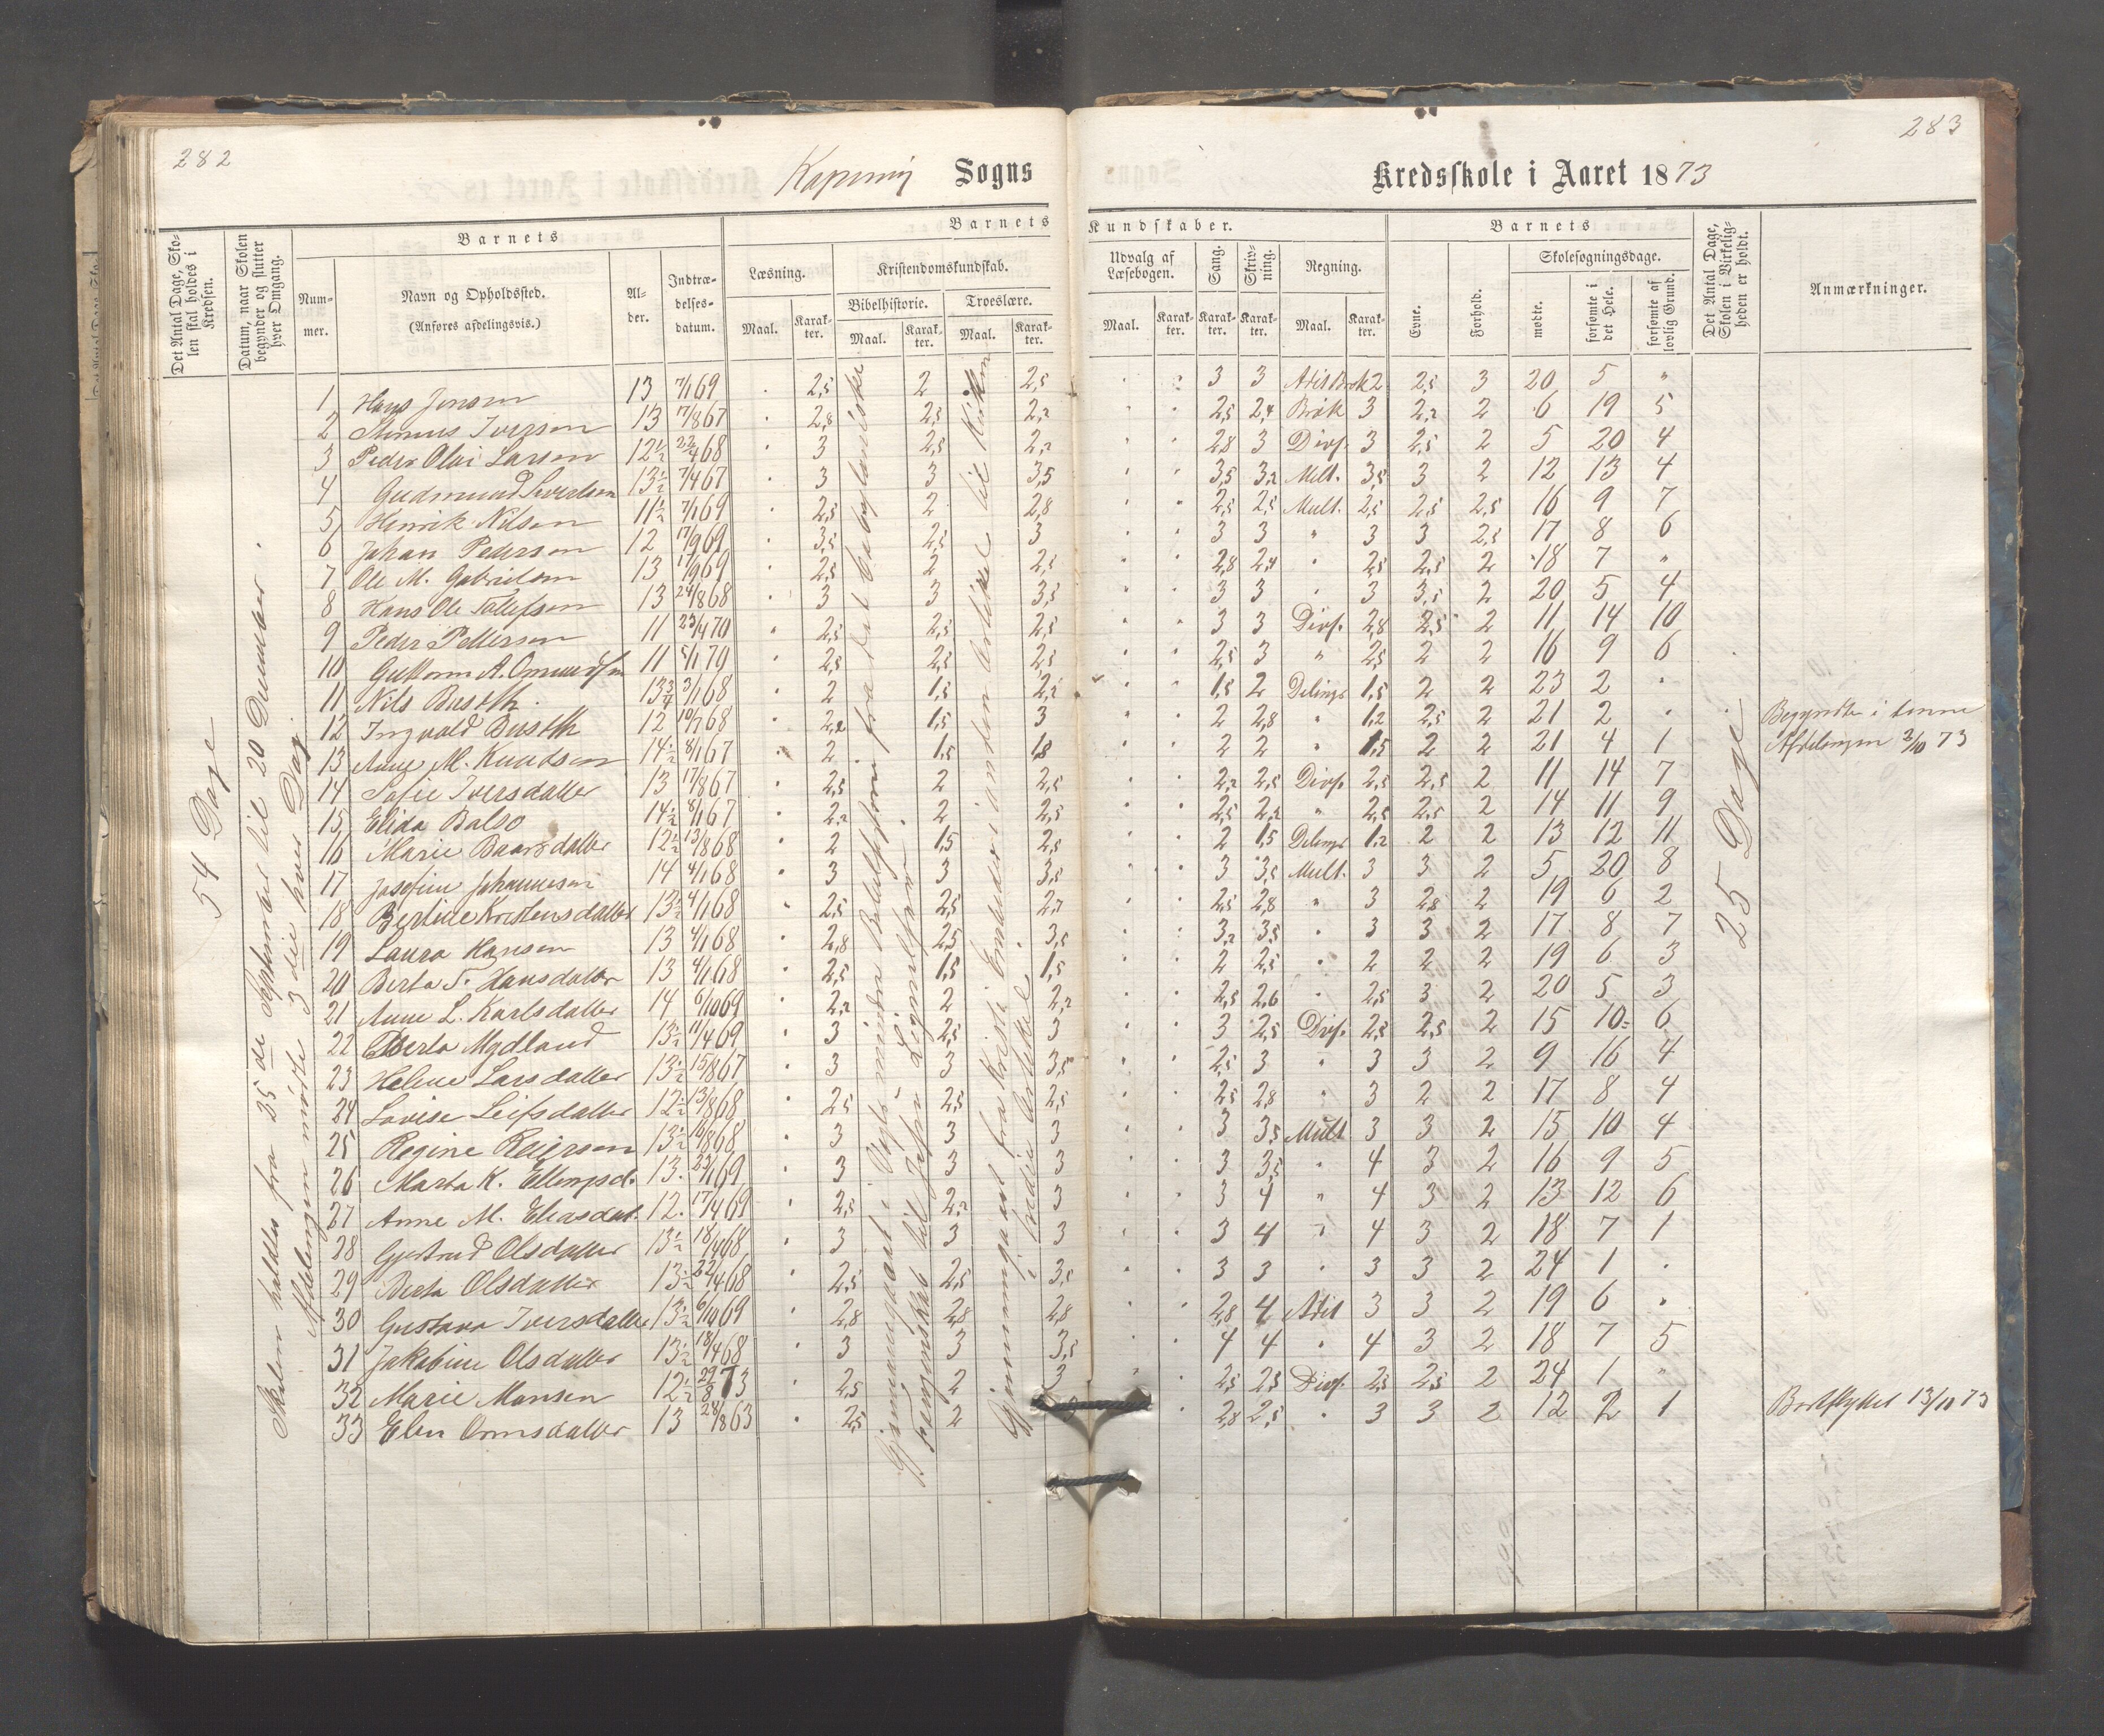 282
Sogns
Barnets
Det Antal Dage, Sko-
len skal holdes i
Kredsen.
Datum, naar Skolen
begynder og slutter
hver Omgang.
Barnets
Num-
mer.
Navn og Opholdssted.
(Anføres afdelingsvis.)
Al-
der.
Indtræ-
delses-
datum.
Læsning.
Maal.
Karak-
ter.
Kristendomskundskab.
Bibelhistorie.
Maal.
Karak-
ter.
Troeslære.
Maal.
Karak-
ter.
54 Dage
Skolen holdtes fra 25de September til 20 December.
Afdelingen mødte 3die hver Dag.
1 Hans Jensen 13 7/1 69 2,5 2 2,5
2 Iversen 13 17/8 67 2,8 2,5 2,2
3 Peder Olai Larsen 12½ 22/4 68 3 2,5 2,2
4 Gudmund 13½ 7/4 67 3 3 3,5
5 Henrik Nilsen 11½ 7/1 69 2,5 2 2,8
6 Johan Pedersen 12 17/9 69 3,5 2,5 3
7 Ole M. Gabrielsen 13 17/9 69 2,5 2 2,5
8 Hans Ole Tollefsen 13 24/8 68 3 3 3,5
9 Peder Pettersen 11 23/4 70 2,5 2,5 2,5
10 Guttorm A. Omundsen 11 5/1 70 2,5 2,5 2,5
11 Nils Buseth 13¾ 3/1 68 2 1,5 2,2
12 Ingvald Buseth 12 10/7 68 2,2 1,5 3
13 Anne M. Knudsen 14½ 8/1 67 2 1,5 1,8
14 Sofie Iversdatter 13 17/8 67 2,5 2 2,5
15 Elida Balso 14½ 8/1 67 2,2 2 2,5
16 Marie Baarsdatter 12½ 13/8 68 2 1,5 2,5
17 Josefine 14 4/1 68 3 3 3,5
18 Bertine Kristensdatter 13½ 4/1 68 2,5 2,5 2,2
19 Laura Hansen 13 4/1 68 2,8 2,5 3,5
20 Berta T. Hansdatter 13 4/1 68 2,5 1,5 1,5
21 Anne L. Karlsdatter 14 6/10 69 2,2 2 2,2
22 Berta Mydland 13½ 11/4 69 3 2,5 3
23 Helene Larsdatter 13½ 15/8 67 3 3 3,5
24 Lovise Leifsdatter 12½ 13/8 68 2,5 2,5 2,5
25 Regine Reiersen 13½ 10/8 68 3 3 3
26 Marta K. Ellingsd. 13. 23/1 69 3 3 3
27 Anne M. Eliasdat. 12. 17/4 69 2,5 2,2 3
28 Gjertrud Olsdatter 13½ 18/4 68 3 3 3
29 Berta Olsdatter 13½ 22/4 68 2,5 2,5 3,5
30 Gustava Iversdatter 13½ 6/10 69 2,8 2,8 2,8
31 Jakobine Olsdatter 13½ 18/4 68 3 3 3,5
32 Marie Monsen 12½ 22/8 73 2,5 2 3
33 Elen Ormsdatter 13 28/8 63 2,5 2 3
Gjennemgaaet i Vogts mindre Bibelhistorie fra det babyloniske
Fangenskab til Jesu Lignelser.
Gjennemgaaet fra Kristi Embeder i anden Artikel til
i tredie Artikel.
283
Kredsskole i Aaret 1873
Kundskaber.
Udvalg af
Læsebogen.
Maal.
Karak-
ter.
Sang.
Karak-
ter.
Skriv-
ning.
Karak-
ter.
Regning.
Maal.
Karak-
ter.
Barnets
Evne.
Forhold.
Skolesøgningsdage.
mødte.
forsømte i
det Hele.
forsømte af
lovlig Grund.
Det Antal Dage,
Skolen i Virkelig-
heden er holdt.
Anmærkninger.
3 3 2 2,5 3 20 5 "
2,5 2,4 Brøk 3 2,2 2 6 19 5
2,8 3 Divs. 3 2,5 2 5 20 4
3,5 3,2 Mult. 3,5 3 2 12 13 4
2,5 2,5 Mult. 2,5 2,5 2,5 16 9 7
3 3 " 3 3 2,5 17 8 6
2,8 2,4 " 2,5 2,5 2 18 7 "
3 3 " 3 3,5 2 20 5 4
3 3 Divs. 2,8 2,5 2 11 14 10
2,5 3 " 2,5 2 2 16 9 6
1,5 2 Delings 1,5 2 2 23 2 "
2 2,8 " 1,2 2,5 2 21 2 " Begyndte i denne
2 2 " 1,5 2 2 21 4 1 Afdelingen 2/10 73
2,2 2,5 Divs. 2,5 2,5 2 11 14 7
2,5 2,2 " 2,5 2,5 2 14 11 9
2 1,5 Delings 1,2 2 2 13 12 11
3 3,5 Mult. 3 3 2 5 20 8
2,5 2,8 " 3 2,8 2 19 6 2
3,2 3,5 " 3 3 2 17 8 7
2 2,5 " 2 2 2 19 6 3
2,5 2,6 " 2,5 3 2 20 5 3
3 2,5 Divs. 2,5 2,5 2 15 10 6
2,5 3 " 3 3 2 9 16 4
2,5 2,8 " 3 2 2 17 8 4
3 3,5 Mult 3 3 2 15 10 4
3 3,5 " 4 3 2 16 9 5
3 4 " 4 3 2 13 12 6
3 4 " 4 3 2 18 7 1
3 3 " 3 3 2 24 1 "
2,8 4 Adit 3 3 2 19 6 "
4 4 " 4 3 2 18 7 5
2,5 2,5 Divs. 2,5 2,5 2 24 1 "
2,8 2,5 " 3 3 2 12 2 1 Bortflyttet 13/11 73
25 Dage